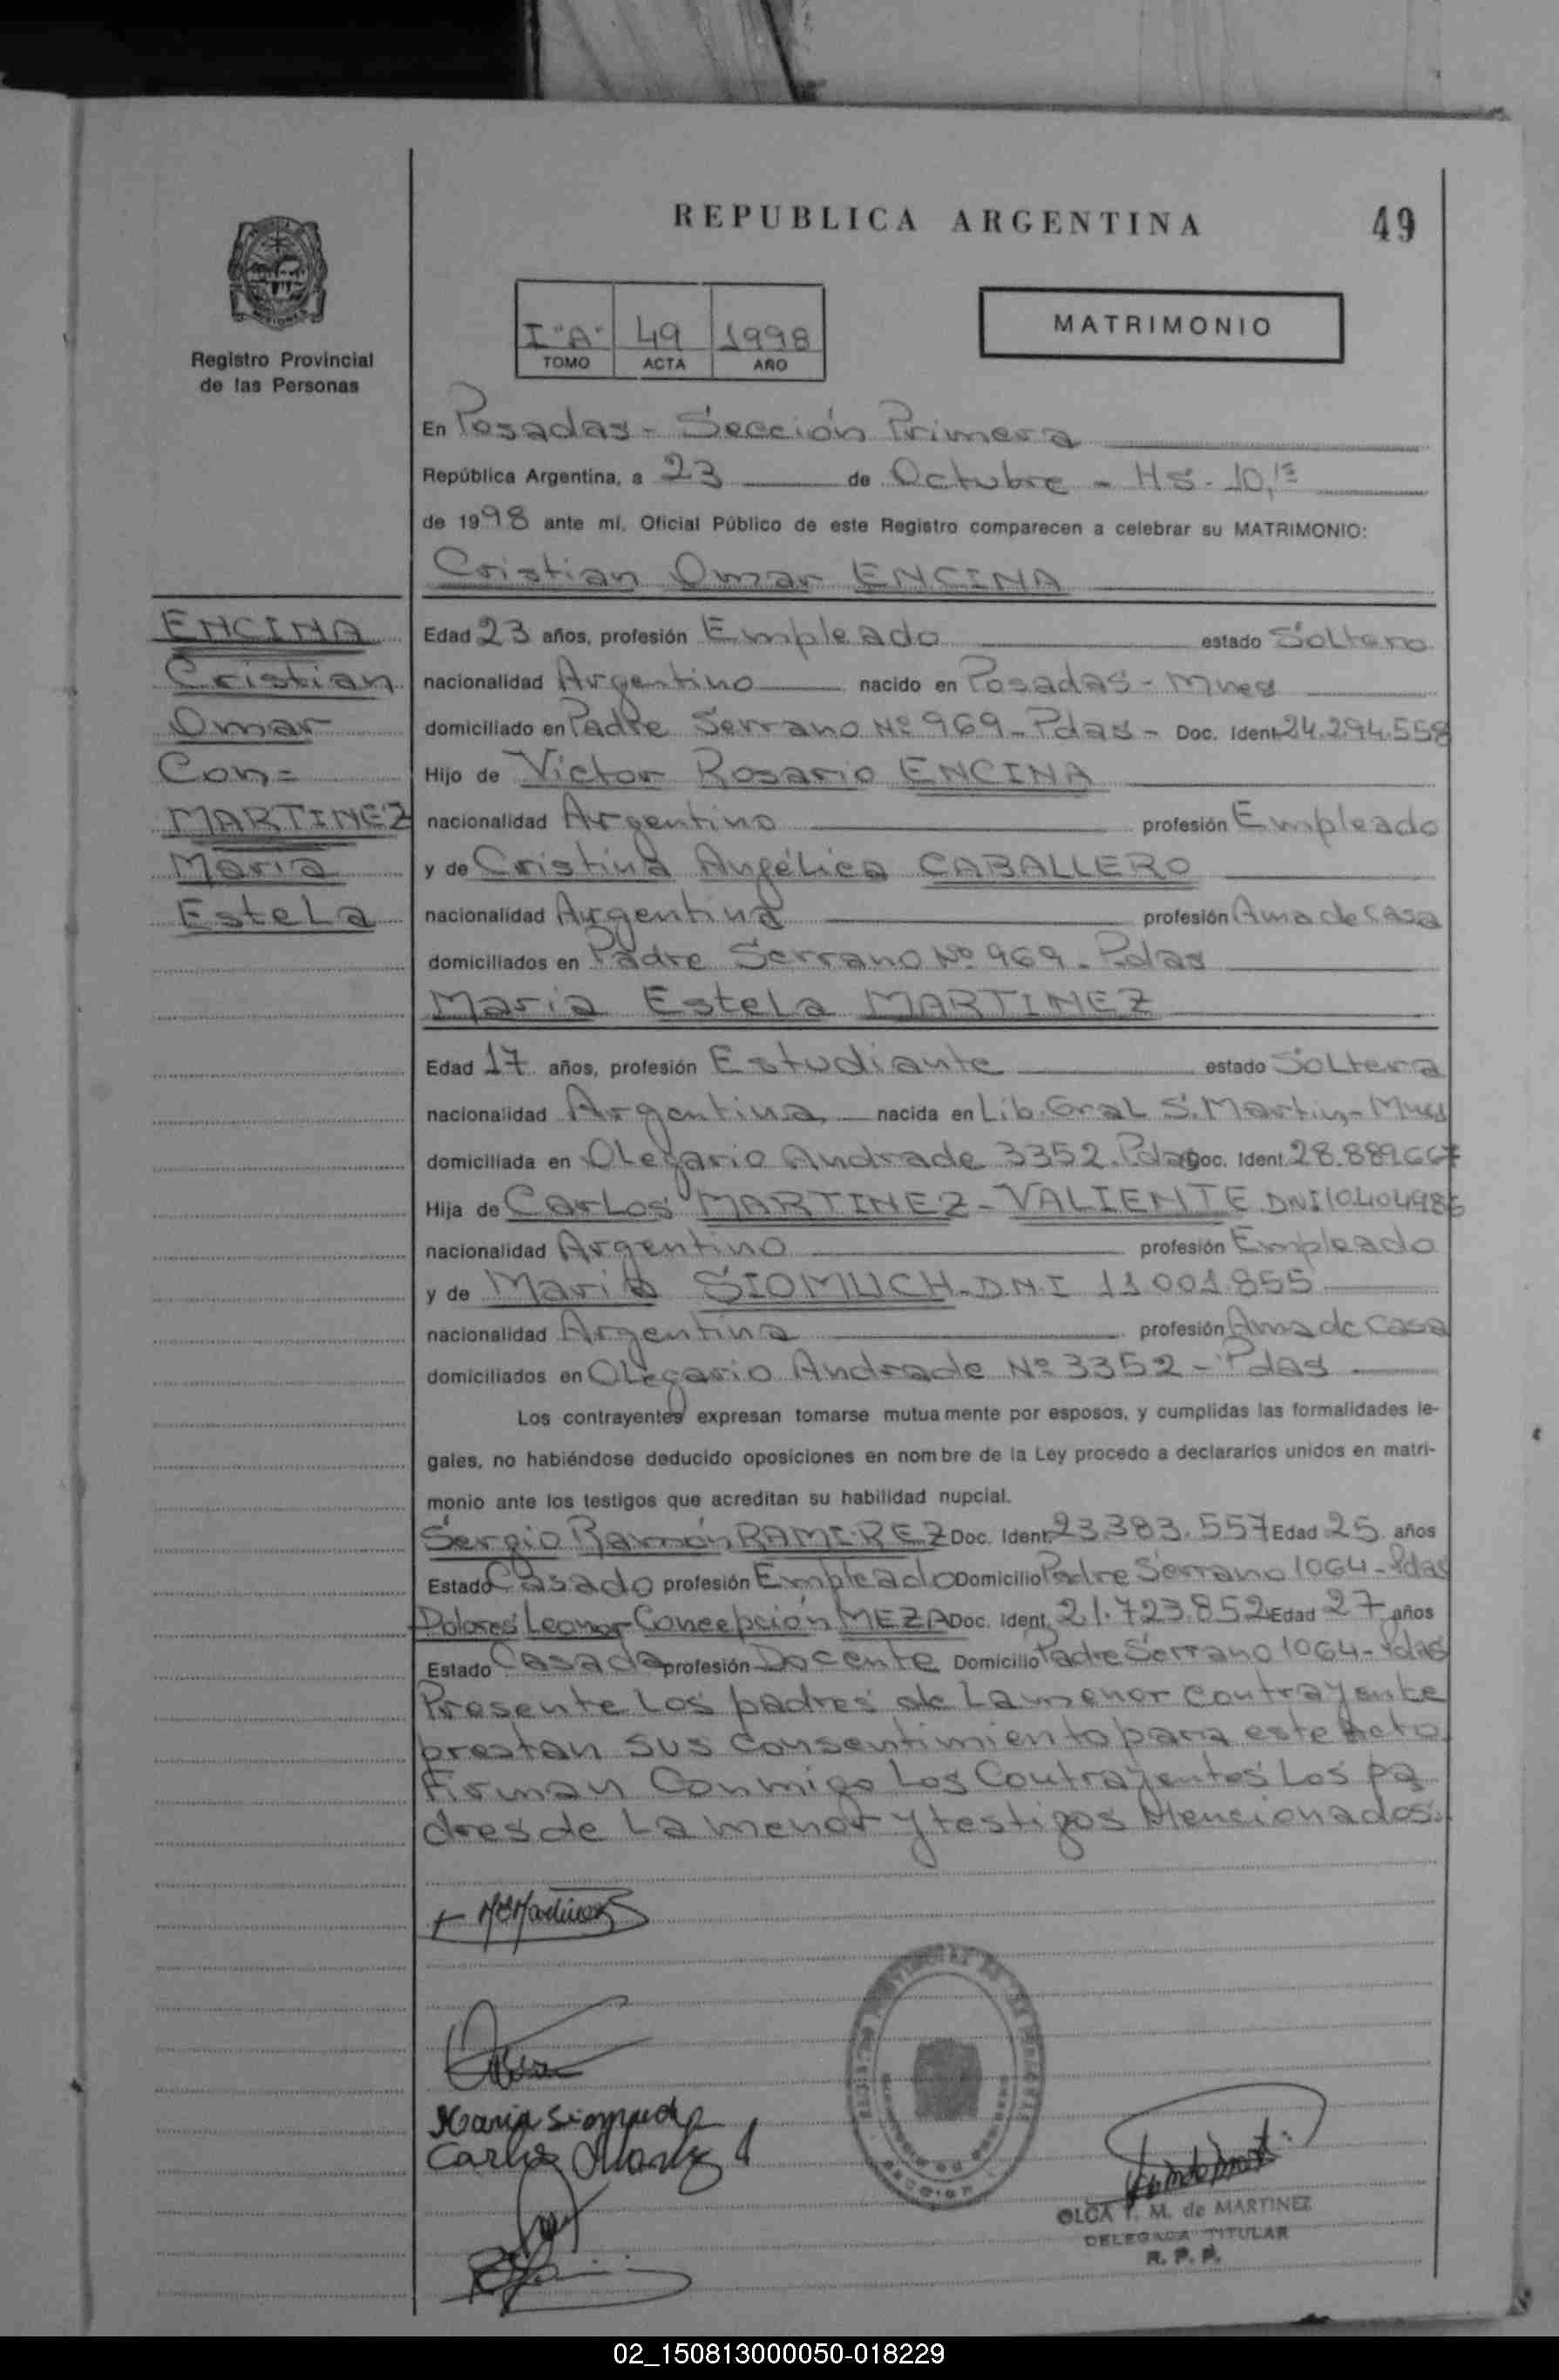 REPUBLICA ARGENTINA
49
Registro Provincial
de las Personas
I "A" 49 1998
TOMO ACTA AÑO
MATRIMONIO
En Posadas - Sección Primera
República Argentina, a 23 de Octubre - HS. 10,15
de 1998 ante mí, Oficial Público de este Registro comparecen a celebrar su MATRIMONIO:
Cristian Omar ENCINA
ENCINA
Cristian
Omar
Con=
MARTINEZ
Maria
Estela
Edad 23 años, profesión Empleado estado Soltero
nacionalidad Argentino nacido en Posadas - Mnes
domiciliado en Padre Serrano Nº 969 - Pdas - Doc. Ident. 24.294.558
Hijo de Victor Rosario ENCINA
nacionalidad Argentino profesión Empleado
y de Cristina Angélica CABALLERO
nacionalidad Argentina profesión Ama de casa
domiciliados en Padre Serrano Nº 969 - Pdas
Maria Estela MARTINEZ
Edad 17 años, profesión Estudiante estado Soltera
nacionalidad Argentina nacida en Lib. Gral S. Martin - Mnes
domiciliada en Olegario Andrade 3352. Pdas Doc. Ident. 28.889667
Hija de Carlos MARTINEZ - VALIENTE DNI 10404986
nacionalidad Argentino profesión Empleado
y de Maria SIOMUCH - D.N.I 11 001.855
nacionalidad Argentina profesión Ama de casa
domiciliados en Olegario Andrade Nº 3352 - Pdas
Los contrayentes expresan tomarse mutuamente por esposos, y cumplidas las formalidades le-
gales, no habiéndose deducido oposiciones en nombre de la Ley procedo a declararlos unidos en matri-
monio ante los testigos que acreditan su habilidad nupcial.
Sergio Ramón RAMIREZ Doc. Ident. 23.383.557 Edad 25 años
Estado Casado profesión Empleado Domicilio Padre Serrano 1064 - Pdas
Dolores Leonor Concepción MEZA Doc. Ident. 21.723.852 Edad 27 años
Estado Casada profesión Docente Domicilio Padre Serrano 1064 - Pdas
Presente Los padres de La menor contrayente
prestan sus consentimiento para este Acto
Firman Conmigo Los Contrayentes Los pa
dres de La menor y testigos Mencionados.
Maria Siomuch
Carlos
OLGA T. M. de MARTINEZ
DELEGADA TITULAR
R. P. P.
02_150813000050-018229